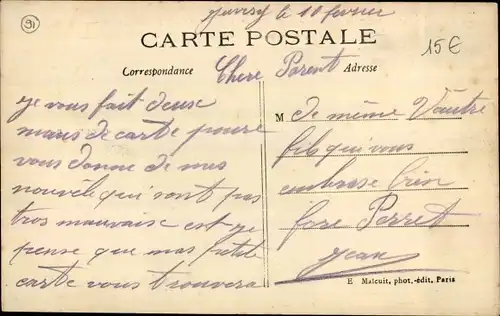 91
Juvisy le 10 fevrier
CARTE POSTALE
15€
Correspondance
Chere Parent
Adresse
je vous fait deuse
maus de carte poure
vous donne de mes
nouvele qui sont pas
tros mauvaise est je
pense que mas petite
carte vous trouvera
M de même Vautre
fils qui vous
embrase bien
fore Perret
Jean
E Malcuit, phot.-édit, Paris